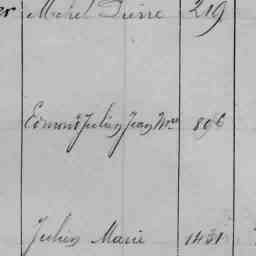 er Michel Pierre 219
Edmond Julien Jean Mie 896
Julien Marie 1431